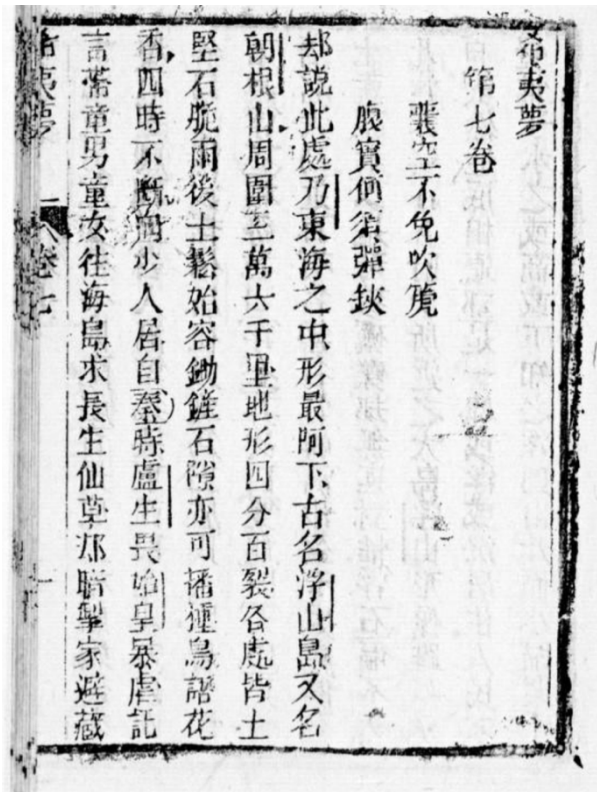 希夷夢
第七卷
囊空不免吹箎
腹實何須彈鋏
却説此處乃東海之中形最阿下古名浮山島又名
朝根山周圍三萬六千里地形四分百裂各處皆土
堅石脆雨後土鬆始容鋤鏟石隙亦可播種鳥語花
香四時不斷向少人居自秦時盧生畏始皇暴虐託
言帶童男童女往海島求長生仙草郤暗挈家避藏
希夷夢
卷七
一